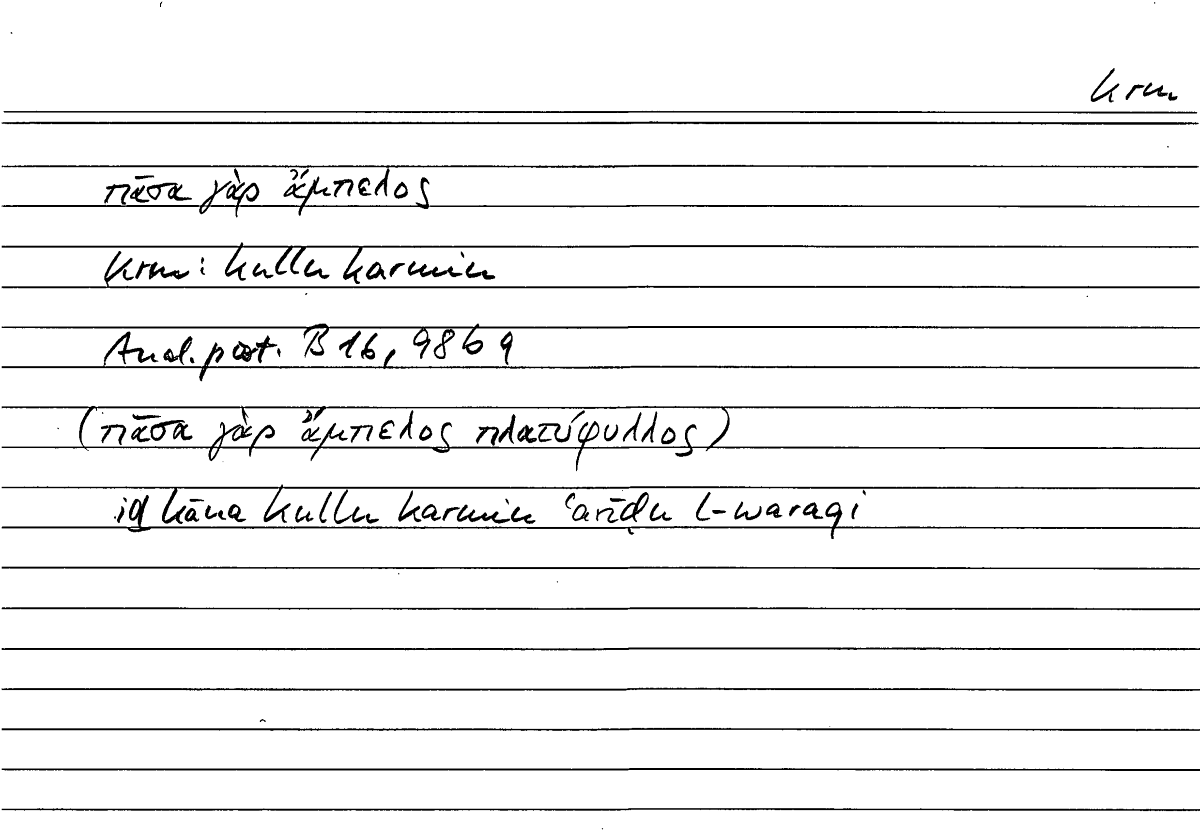 krm
πᾶσα γὰρ ἄμπελος
krm: kullu karmin
Anal. post. B 16, 98b 9
(πᾶσα γὰρ ἄμπελος πλατύφυλλος)
iḏ kāna kullu karmin ʿarīḍu l-waraqi